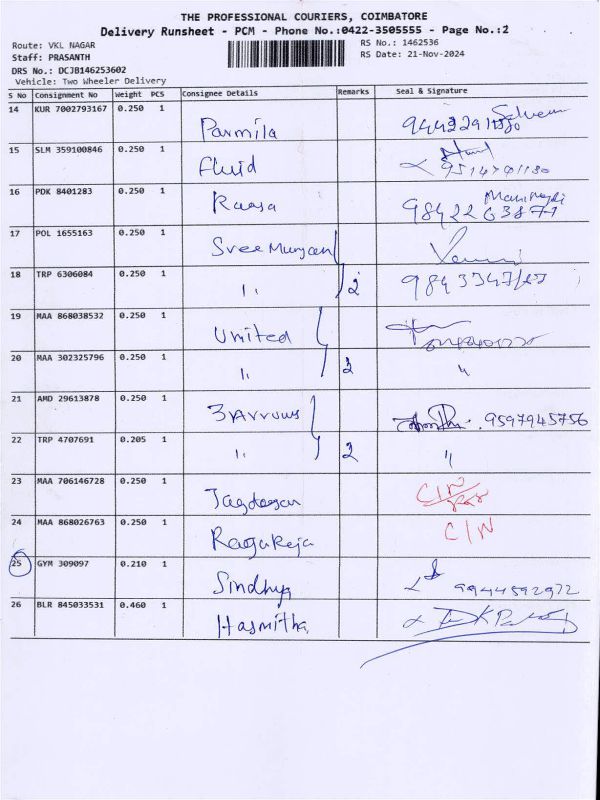 THE PROFESSIONAL COURIERS, COIMBATORE
Delivery Runsheet - PCM - Phone No.:0422-3505555 - Page No.:2
Route: VKL NAGAR RS No.: 1462536
Staff: PRASANTH RS Date: 21-Nov-2024
DRS No.: DCJB146253602
Vehicle: Two Wheeler Delivery
S No Consignment No Weight PCS Consignee Details Remarks Seal & Signature
14 KUR 7002793167 0.250 1 Parmila
15 SLM 359100846 0.250 1 Fluid
16 PDK 8401283 0.250 1 Raasa 98422 63871
17 POL 1655163 0.250 1 Sree Murugan
18 TRP 6306084 0.250 1 1. 2
19 MAA 868038532 0.250 1 United
20 MAA 302325796 0.250 1 1. 2 "
21 AMD 29613878 0.250 1 3 Arrows 9597945756
22 TRP 4707691 0.205 1 1. 2 "
23 MAA 706146728 0.250 1 C/N
24 MAA 868026763 0.250 1 C/N
25 GYM 309097 0.210 1 Sindhya 9944592972
26 BLR 845033531 0.460 1 Hasmitha